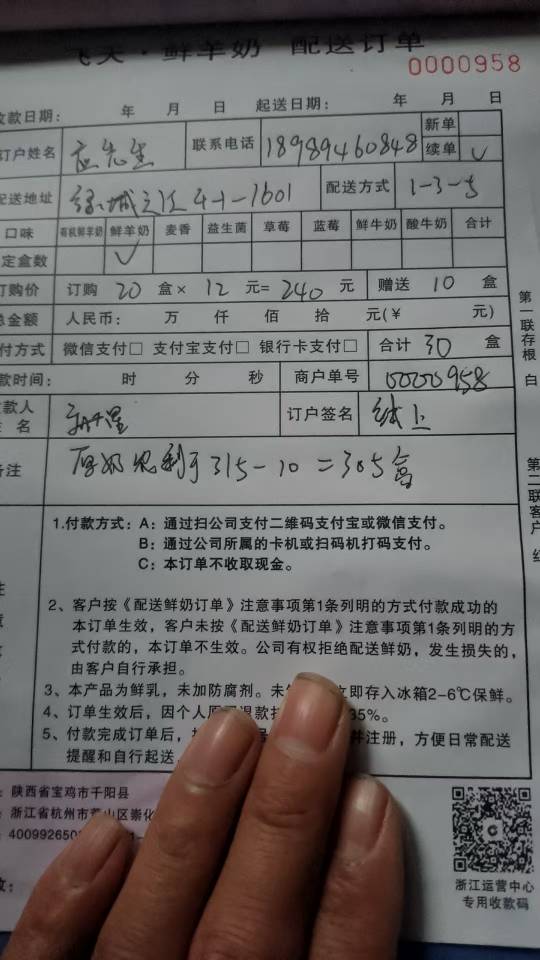 飞天·鲜羊奶 配送订单
0000958
收款日期： 年 月 日 起送日期： 年 月 日
订户姓名 先生 联系电话 18989460848 新单 续单 ✓
配送地址 绿城之江 4-1-1601 配送方式 1-3-5
口味 有机鲜羊奶 鲜羊奶 麦香 益生菌 草莓 蓝莓 鲜牛奶 酸牛奶 合计
定盒数 ✓
订购价 订购 20 盒× 12 元= 240 元 赠送 10 盒
总金额 人民币： 万 仟 佰 拾 元(￥ 元)
付方式 微信支付□ 支付宝支付□ 银行卡支付□ 合计 30 盒
款时间： 时 分 秒 商户单号 0000958
收款人姓名 订户签名 线上
备注 原奶 315-10=305盒
1.付款方式：A：通过扫公司支付二维码支付宝或微信支付。
B：通过公司所属的卡机或扫码机打码支付。
C：本订单不收取现金。
2、客户按《配送鲜奶订单》注意事项第1条列明的方式付款成功的
本订单生效，客户未按《配送鲜奶订单》注意事项第1条列明的方
式付款的，本订单不生效。公司有权拒绝配送鲜奶，发生损失的，
由客户自行承担。
3、本产品为鲜乳，未加防腐剂。未 立即存入冰箱2-6℃保鲜。
4、订单生效后，因个人原 退款 35%。
5、付款完成订单后， 注册，方便日常配送
提醒和自行起送
陕西省宝鸡市千阳县
浙江省杭州市萧山区崇化
40099265
浙江运营中心
专用收款码
第一联存根 白
第二联客户 红